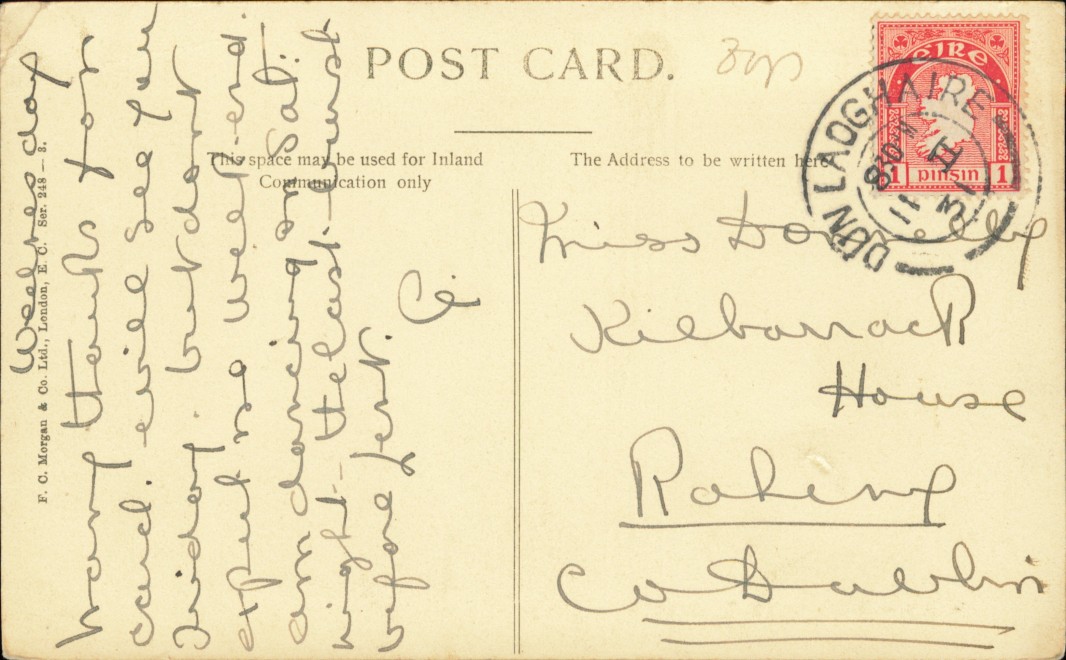 POST CARD.
This space may be used for Inland
Communication only
The Address to be written here
F. C. Morgan & Co. Ltd., London, E. C. Ser. 248 – 3.
Wednesday
many thanks for
card. will see you
Friday. but don't
week-end
am dancing on Sat.
night – the last
before Lent.
Miss Donnelly
Kilbarrack
House
Raheny
Co Dublin
éire
1 pinsin 1
DÚN LAOGHAIRE
11 II 31